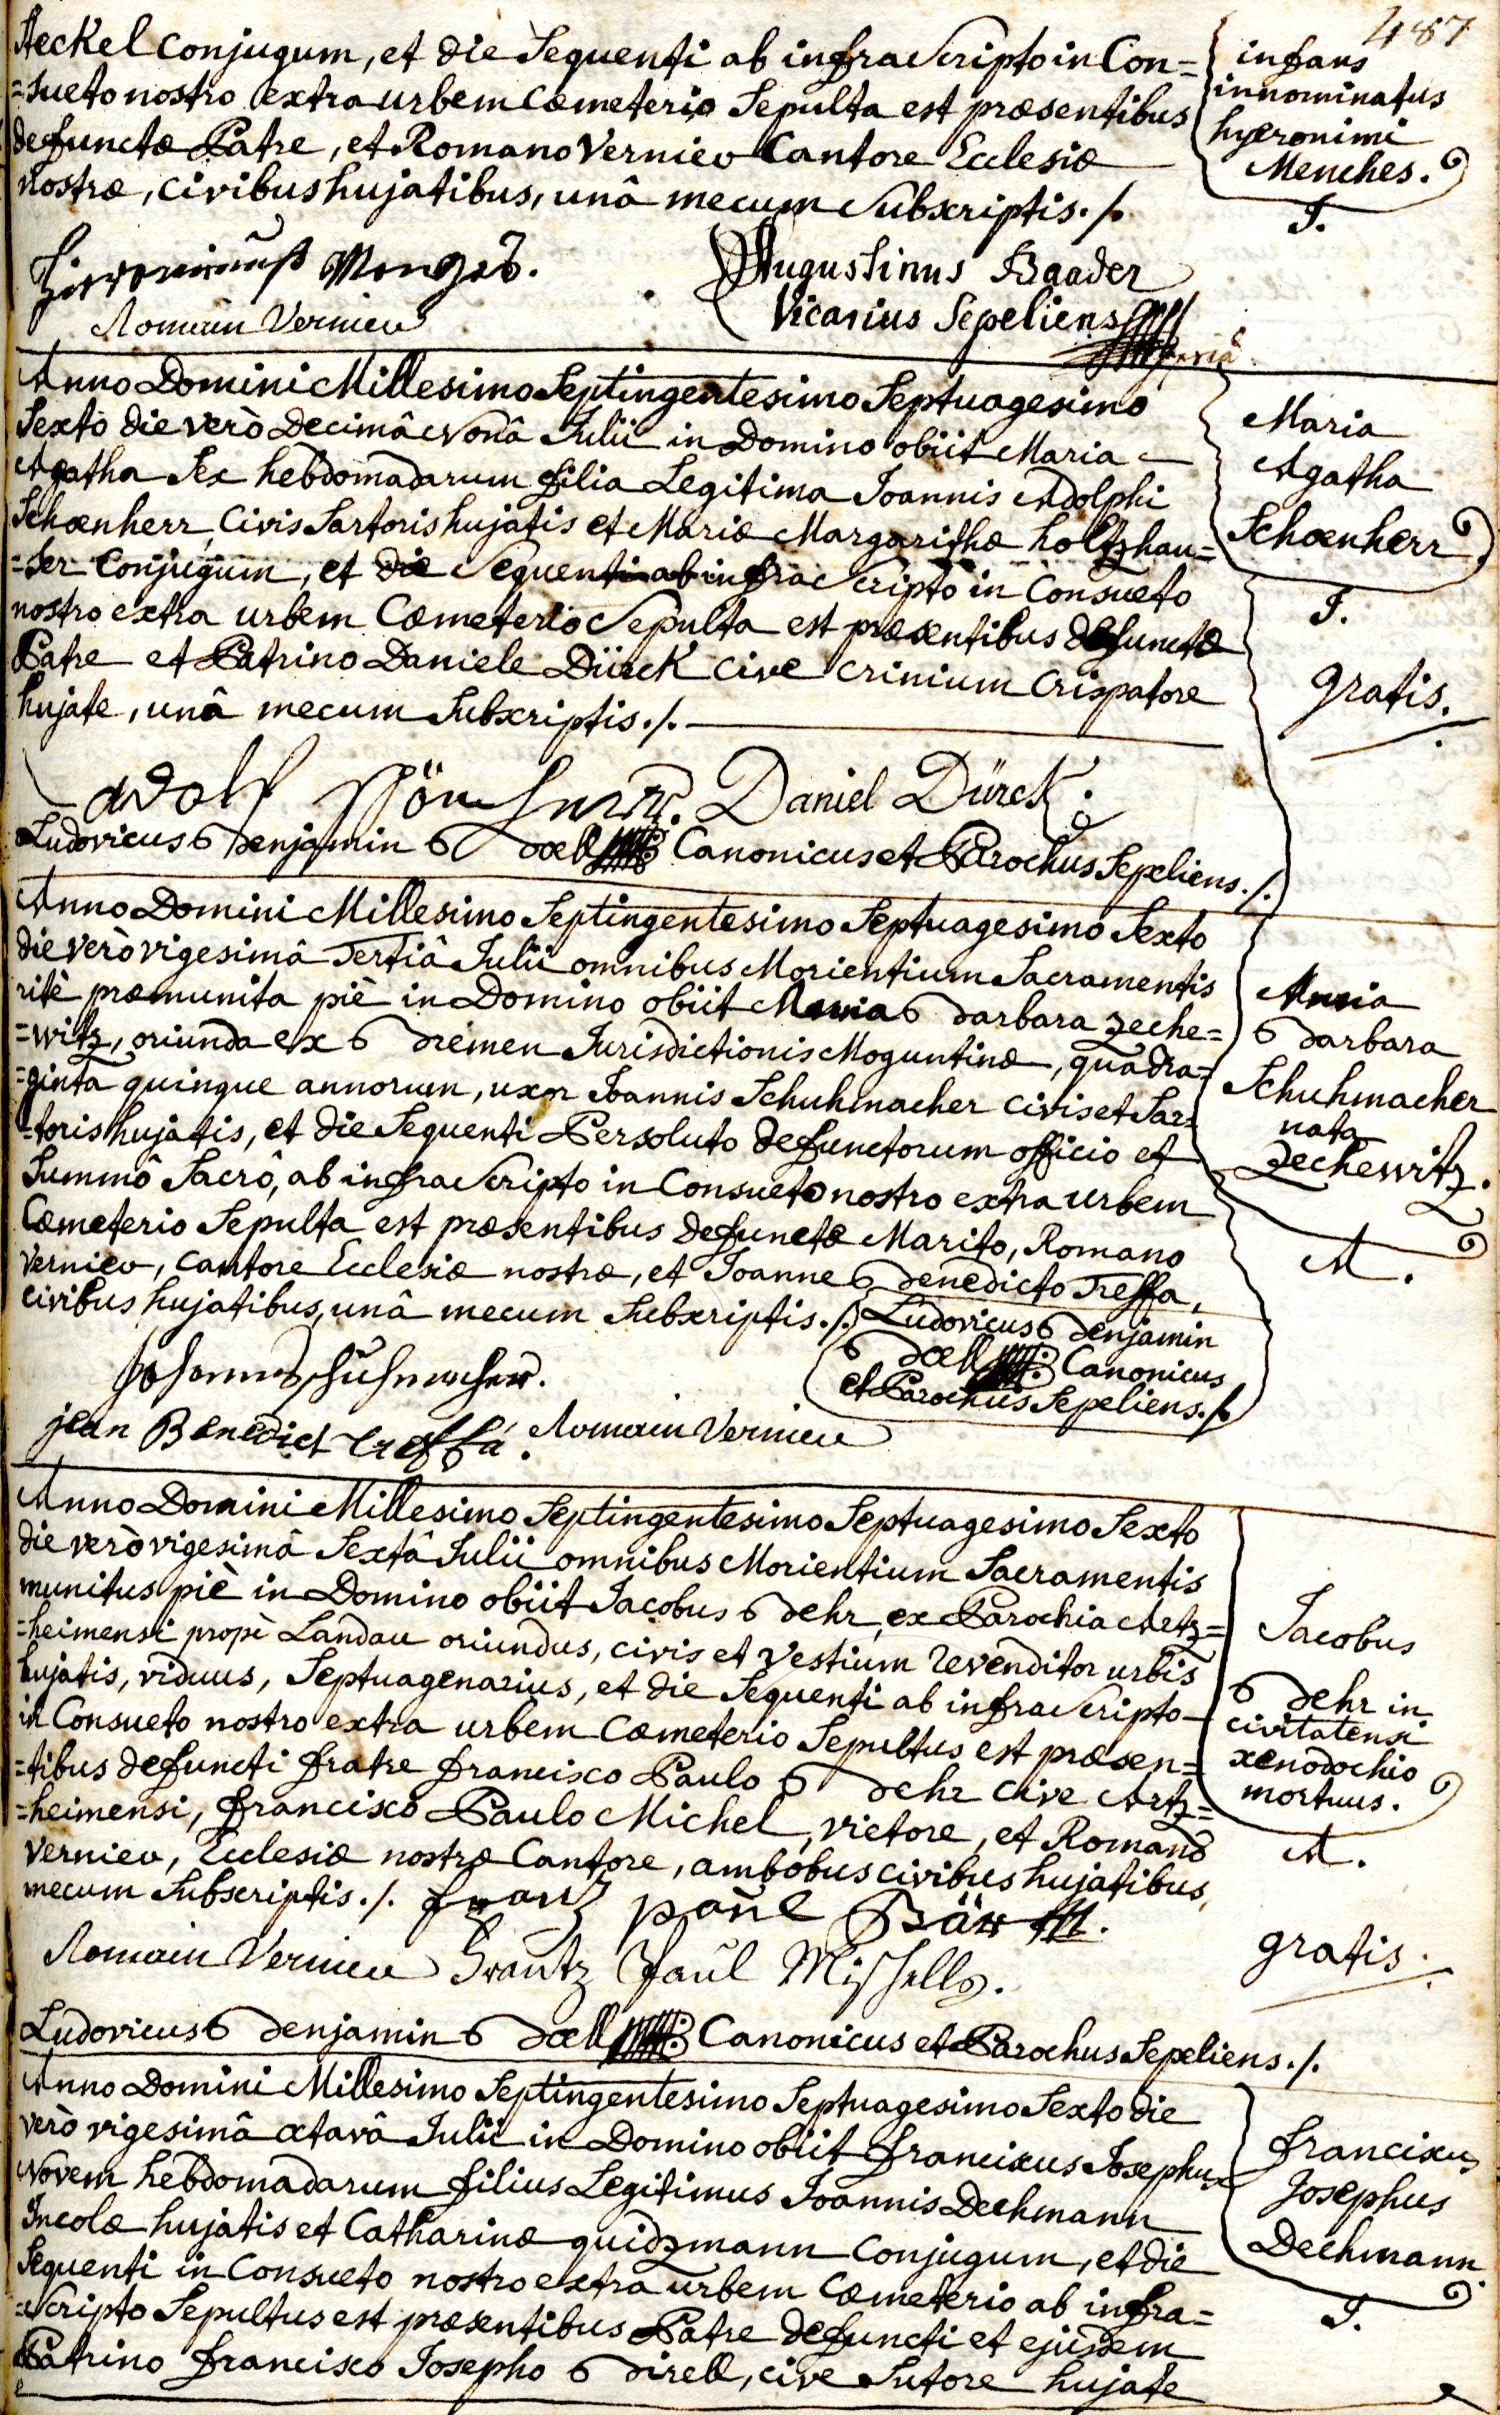 487
Heckel conjugum, et die Sequenti ab infrascripto in Con=
=sueto nostro extra urbem cœmeterio Sepulta est præsentibus
defunctæ Patre, et Romano Vernieu Cantore Ecclesiæ
nostræ, civibus hujatibus, unâ mecum Subscriptis ./.
infans
innominatus
hyeronimi
Menches.
I.
Romain Vernieu
Augustinus Baader
Vicarius Sepeliens
Anno Domini Millesimo Septingentesimo Septuagesimo
Sexto die verò decimâ Nonâ Julii in Domino obiit Maria
Agatha Sex hebdomadarum filia Legitima Joannis Adolphi
Schœnherr, Civis Sartoris hujatis et Mariæ Margarithæ holtzhau=
=ser Conjugum, et die Sequenti ab infrascripto in Consueto
nostro extra urbem Cœmeterio Sepulta est præsentibus defunctæ
Patre et Patrino Daniele Dürck cive crinium Crispatore
hujate, unâ mecum Subscriptis ./.
Maria
Agatha
Schœnherr
I.
gratis.
Adolf Schönherr. Daniel Dürck.
Ludovicus Benjamin Bœll Canonicus et Parochus Sepeliens ./.
Anno Domini Millesimo Septingentesimo Septuagesimo Sexto
die verò vigesimâ Tertiâ Julii omnibus Morientium Sacramentis
ritè præmunita piè in Domino obiit Maria Barbara Zeche=
=witz, oriunda ex Bremen Jurisdictionis Moguntinæ, quadra=
=ginta quinque annorum, uxor Joannis Schuhmacher civis et Sar=
=toris hujatis, et die Sequenti Persoluto defunctorum officio et
Summô Sacrô, ab infrascripto in Consueto nostro extra urbem
Cœmeterio Sepulta est præsentibus defunctæ Marito, Romano
Vernieu, cantore Ecclesiæ nostræ, et Joanne Benedicto Treffa,
civibus hujatibus, unâ mecum Subscriptis ./.
Maria
Barbara
Schuhmacher
nata
Zechewitz.
A.
Ludovicus Benjamin
Bœll Canonicus
et Parochus Sepeliens ./.
Johannes Schuhmacher.
jean Benedict treffa. Romain Vernieu
Anno Domini Millesimo Septingentesimo Septuagesimo Sexto
die verò vigesimâ Sextâ Julii omnibus Morientium Sacramentis
munitus piè in Domino obiit Jacobus Behr, ex Parochia Aetz=
=heimensi propè Landau oriundus, civis et Vestium revenditor urbis
hujatis, viduus, Septuagenarius, et die Sequenti ab infrascripto
in Consueto nostro extra urbem Cœmeterio Sepultus est præsen=
=tibus defuncti fratre francisco Paulo Behr cive Artz=
=heimensi, francisco Paulo Michel, vietore, et Romano
Vernieu, Ecclesiæ nostræ Cantore, ambobus civibus hujatibus,
mecum Subscriptis ./. franz paul Bär
Jacobus
Behr in
civitatensi
xenodochio
mortuus.
A.
gratis.
Romain Vernieu Frantz Paul Mischell.
Ludovicus Benjamin Bœll Canonicus et Parochus Sepeliens ./.
Anno Domini Millesimo Septingentesimo Septuagesimo Sexto die
verò vigesimâ octavâ Julii in Domino obiit franciscus Josephus
Novem hebdomadarum filius Legitimus Joannis Dechmann
Incolæ hujatis et Catharinæ quidzmann Conjugum, et die
Sequenti in Consueto nostro extra urbem Cœmeterio ab infra=
=scripto Sepultus est præsentibus Patre defuncti et ejusdem
Patrino francisco Josepho Birell, cive Sutore hujate
franciscus
Josephus
Dechmann
I.